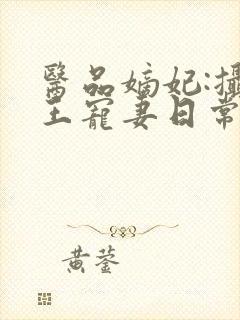 醫品嫡妃:攝
王寵妻日常
黃蓥